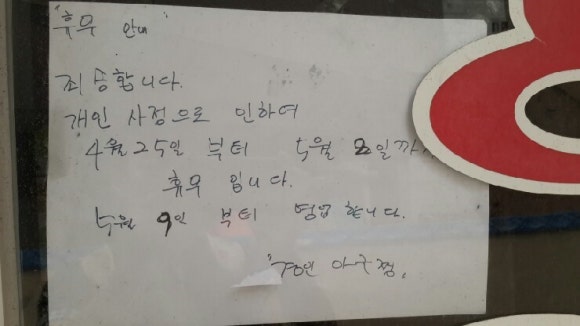 "휴무 안내
죄송합니다.
개인 사정으로 인하여
4월25일 부터 5월 8일까
휴무 입니다.
5월 9일 부터 영업 합니다.
아구찜.